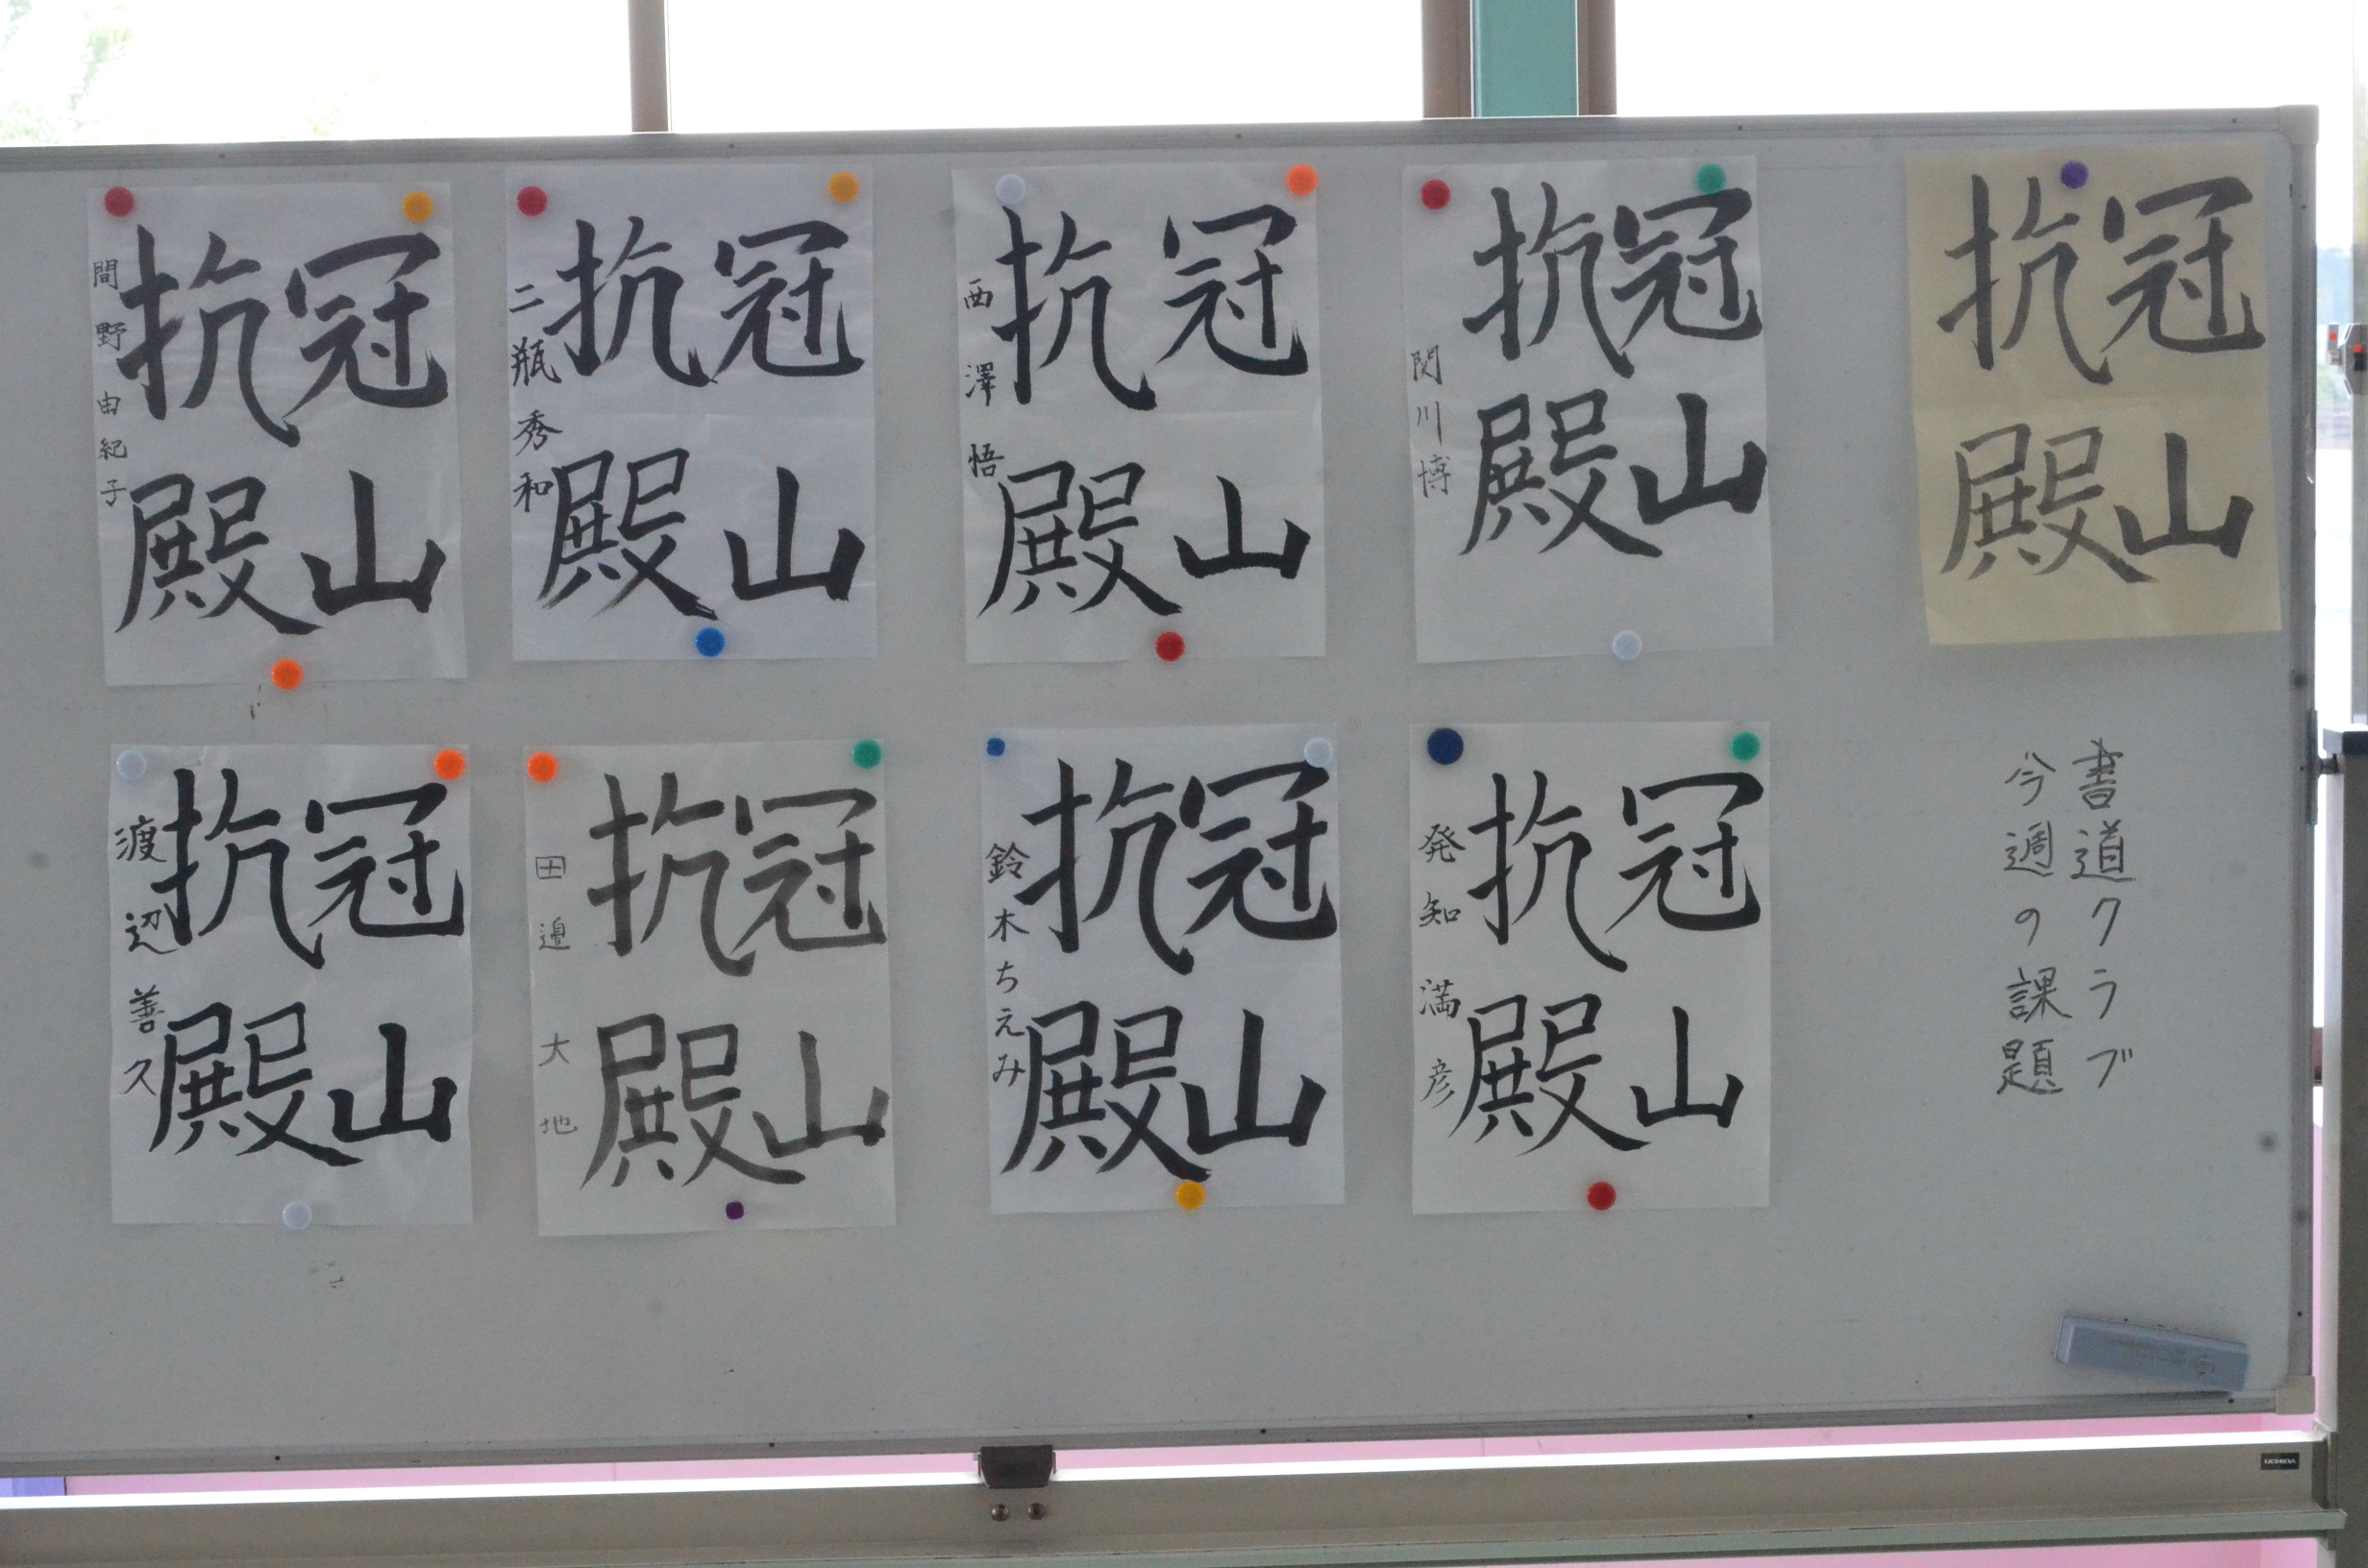 冠山
抗殿
書道クラブ
今週の課題
冠山
抗殿
関川博
冠山
抗殿
西澤悟
冠山
抗殿
二瓶秀和
冠山
抗殿
間野由紀子
冠山
抗殿
発知満彦
冠山
抗殿
鈴木ちえみ
冠山
抗殿
田邉大地
冠山
抗殿
渡辺善久
UCHIDA